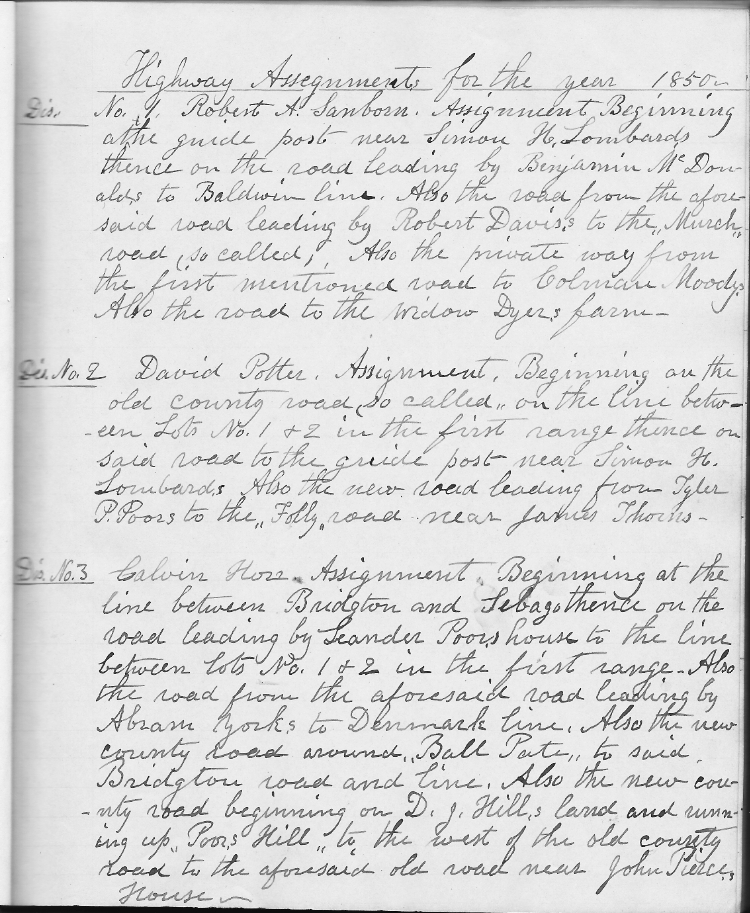 Highway Assegnments for the year 1850
Dis. No. 1. Robert A. Sanborn. Assignment Beginning
at the guide post near Simon H. Lombards
thence on the road leading by Benjamin McDon-
alds to Baldwin line. Also the road from the afore-
said road leading by Robert Davis,s to the „Murch„
road, so called, Also the private way from
the first mentioned road to Colman Moodys
Also the road to the widow Dyer,s farm-
Dis. No. 2 David Potter. Assignment. Beginning on the
old county road, so called„ on the line betw-
-een Lots No. 1 & 2 in the first range thence on
said road to the guide post near Simon H.
Lombards Also the new road leading from Tyler
P. Poors to the „Folly„ road near James Thorns-
Dis. No. 3 Calvin Horr. Assignment. Beginning at the
line between Bridgton and Sebago thence on the
road leading by Leander Poor,s house to the line
between lots No. 1 & 2 in the first range - Also
the road from the aforesaid road leading by
Abram York,s to Denmark line. Also the new
county road around „Ball Pate„ to said
Bridgton road and line. Also the new cou-
-nty road beginning on D. J. Hill,s land and runn-
ing up „Poors Hill„ to the west of the old county
road to the aforesaid old road near John Pierce,s
House